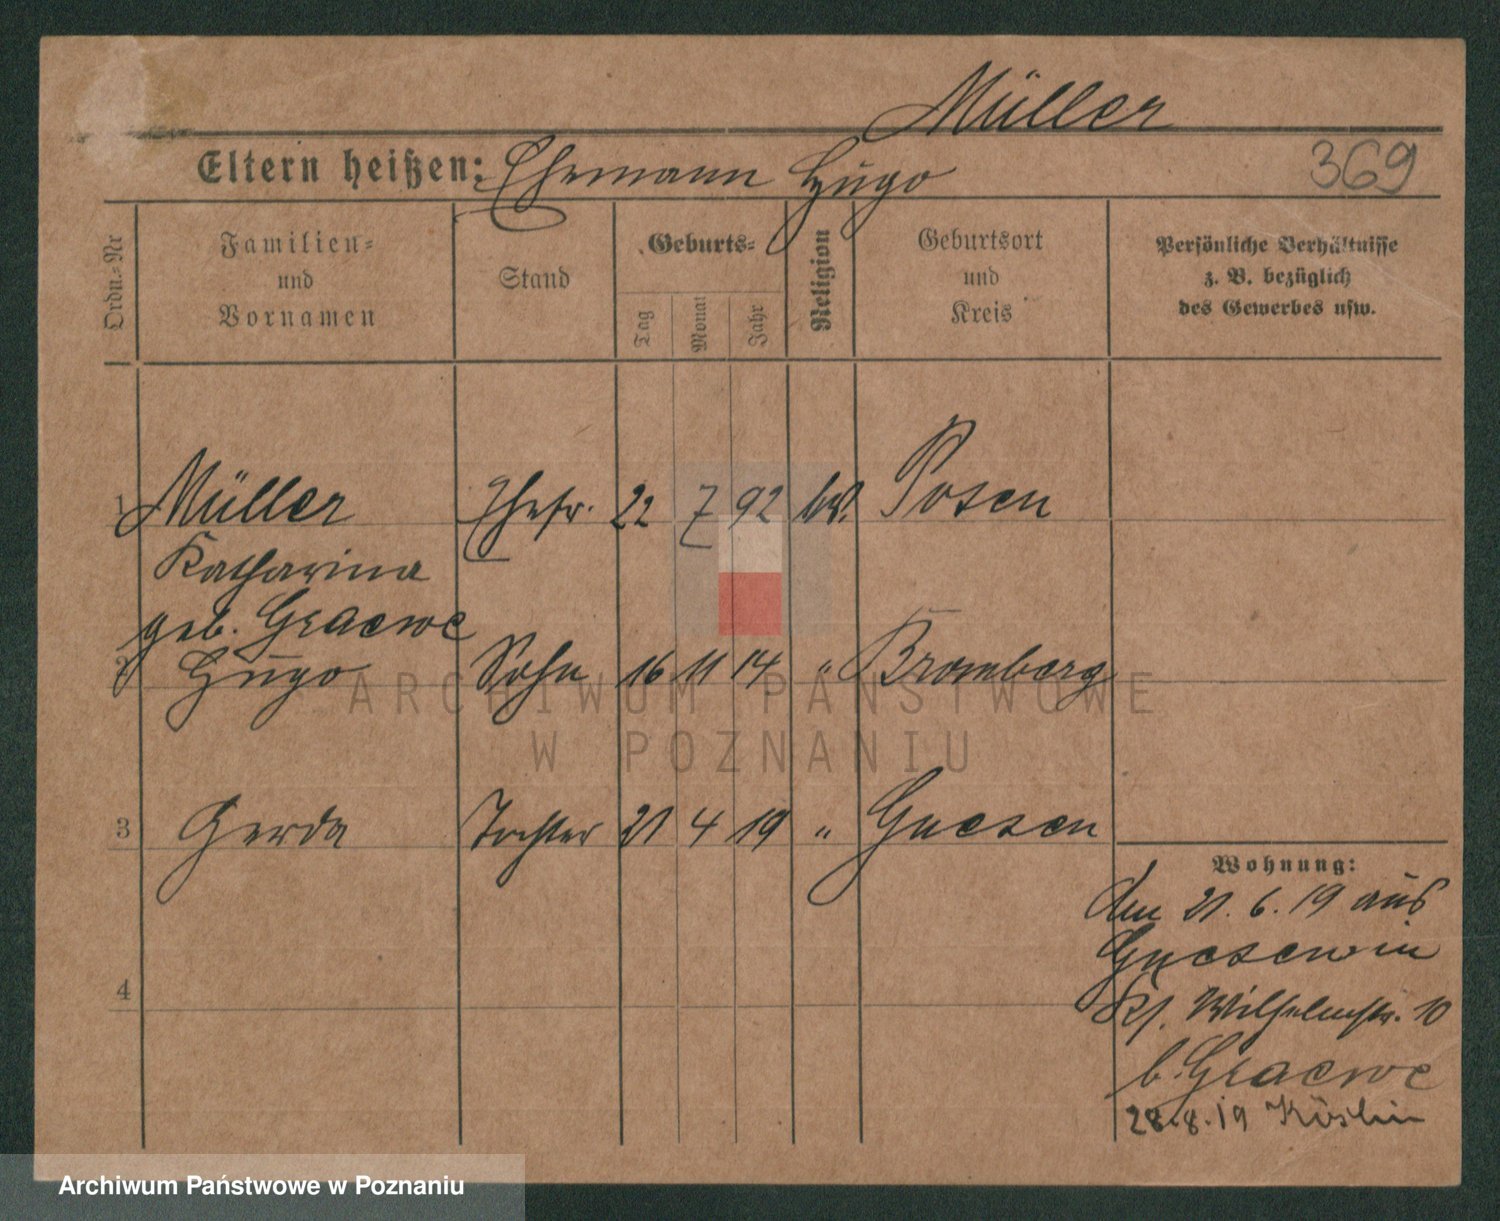 Müller
Eltern heißen: Ehemann Hugo
369
Ordn.-Nr
Familien-
und
Vornamen
Stand
Geburts-
Tag
Monat
Jahr
Religion
Geburtsort
und
Kreis
Persönliche Verhältnisse
z. B. bezüglich
des Gewerbes usw.
1 Müller Ehefr. 22 7 92 ev. Posen
Katharina
geb. Graewe
2 Hugo Sohn 16 11 14 " Bromberg
3 Gerda Tochter 21 4 19 " Gnesen
4
Wohnung:
den 21. 6. 19 aus
Gnesen in
Wilhelmstr. 10
b. Graewe
28.8.19 Köslin
ARCHIWUM PAŃSTWOWE
W POZNANIU
Archiwum Państwowe w Poznaniu